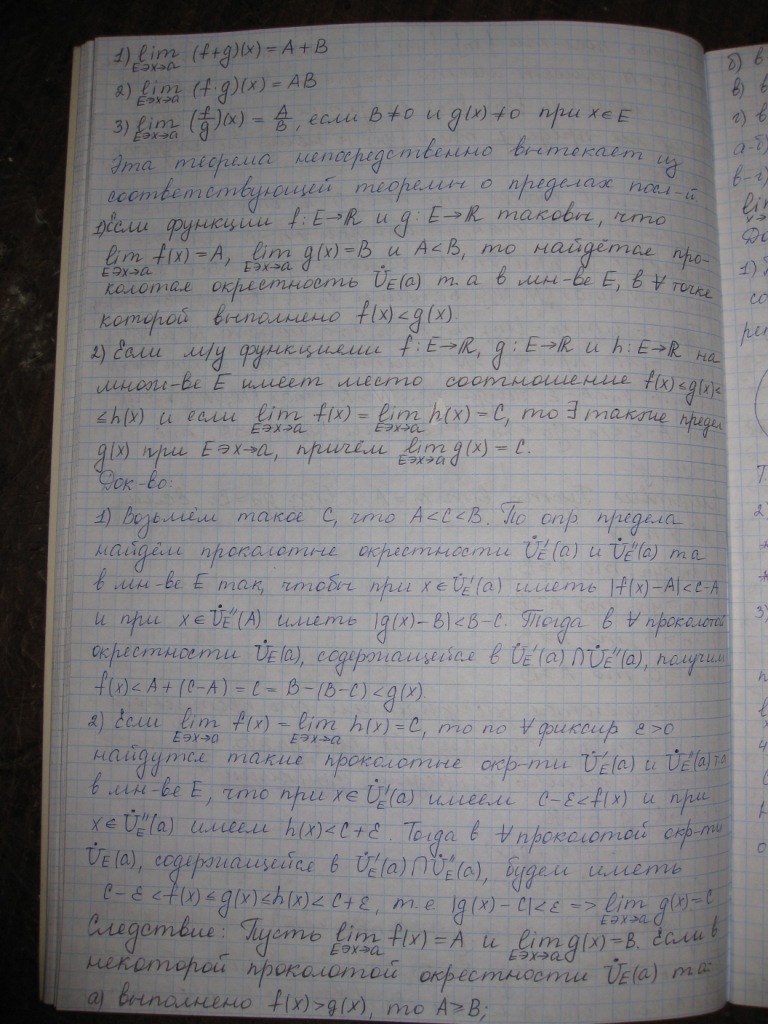 1) lim (f+g)(x) = A + B
E∋x→a
2) lim (f·g)(x) = AB
E∋x→a
3) lim (f/g)(x) = A/B, если B≠0 и g(x)≠0 при x∈E
E∋x→a
Эта теорема непосредственно вытекает из
соответствующей теоремы о пределах посл-й.
1) Если функции f: E→ℝ и g: E→ℝ таковы, что
lim f(x) = A, lim g(x) = B и A<B, то найдётся про-
E∋x→a E∋x→a
колотая окрестность U̇E(a) т. a в мн-ве E, в ∀ точке
которой выполнено f(x)<g(x)
2) Если м/у функциями f: E→ℝ, g: E→ℝ и h: E→ℝ на
множ-ве E имеет место соотношение f(x)≤g(x)≤
≤h(x) и если lim f(x) = lim h(x) = C, то ∃ также предел
E∋x→a E∋x→a
g(x) при E∋x→a, причём lim g(x) = C.
E∋x→a
Док-во:
1) Возьмём такое C, что A<C<B. По опр предела
найдём проколотые окрестности U̇E'(a) и U̇E''(a) т a
в мн-ве E так, чтобы при x∈U̇E'(a) иметь |f(x)-A|<C-A
и при x∈U̇E''(A) иметь |g(x)-B|<B-C. Тогда в ∀ проколотой
окрестности U̇E(a), содержащейся в U̇E'(a)⋂U̇E''(a), получим
f(x)<A+(C-A) = C = B-(B-C)<g(x).
2) Если lim f(x) = lim h(x) = C, то по ∀ фиксир ε>0
E∋x→a E∋x→a
найдутся такие проколотые окр-ти U̇E'(a) и U̇E''(a) т a
в мн-ве E, что при x∈U̇E'(a) имеем C-ε<f(x) и при
x∈U̇E''(a) имеем h(x)<C+ε. Тогда в ∀ проколотой окр-ти
U̇E(a), содержащейся в U̇E'(a)⋂U̇E''(a), будем иметь
C-ε<f(x)≤g(x)≤h(x)<C+ε, т.е |g(x)-C|<ε => lim g(x) = C
E∋x→a
Следствие: Пусть lim f(x) = A и lim g(x) = B. Если в
E∋x→a E∋x→a
некоторой проколотой окрестности U̇E(a) т a:
а) выполнено f(x)>g(x), то A≥B;
б) в
в) в
г) в
а-б)
в-г)
1)
2)
3)